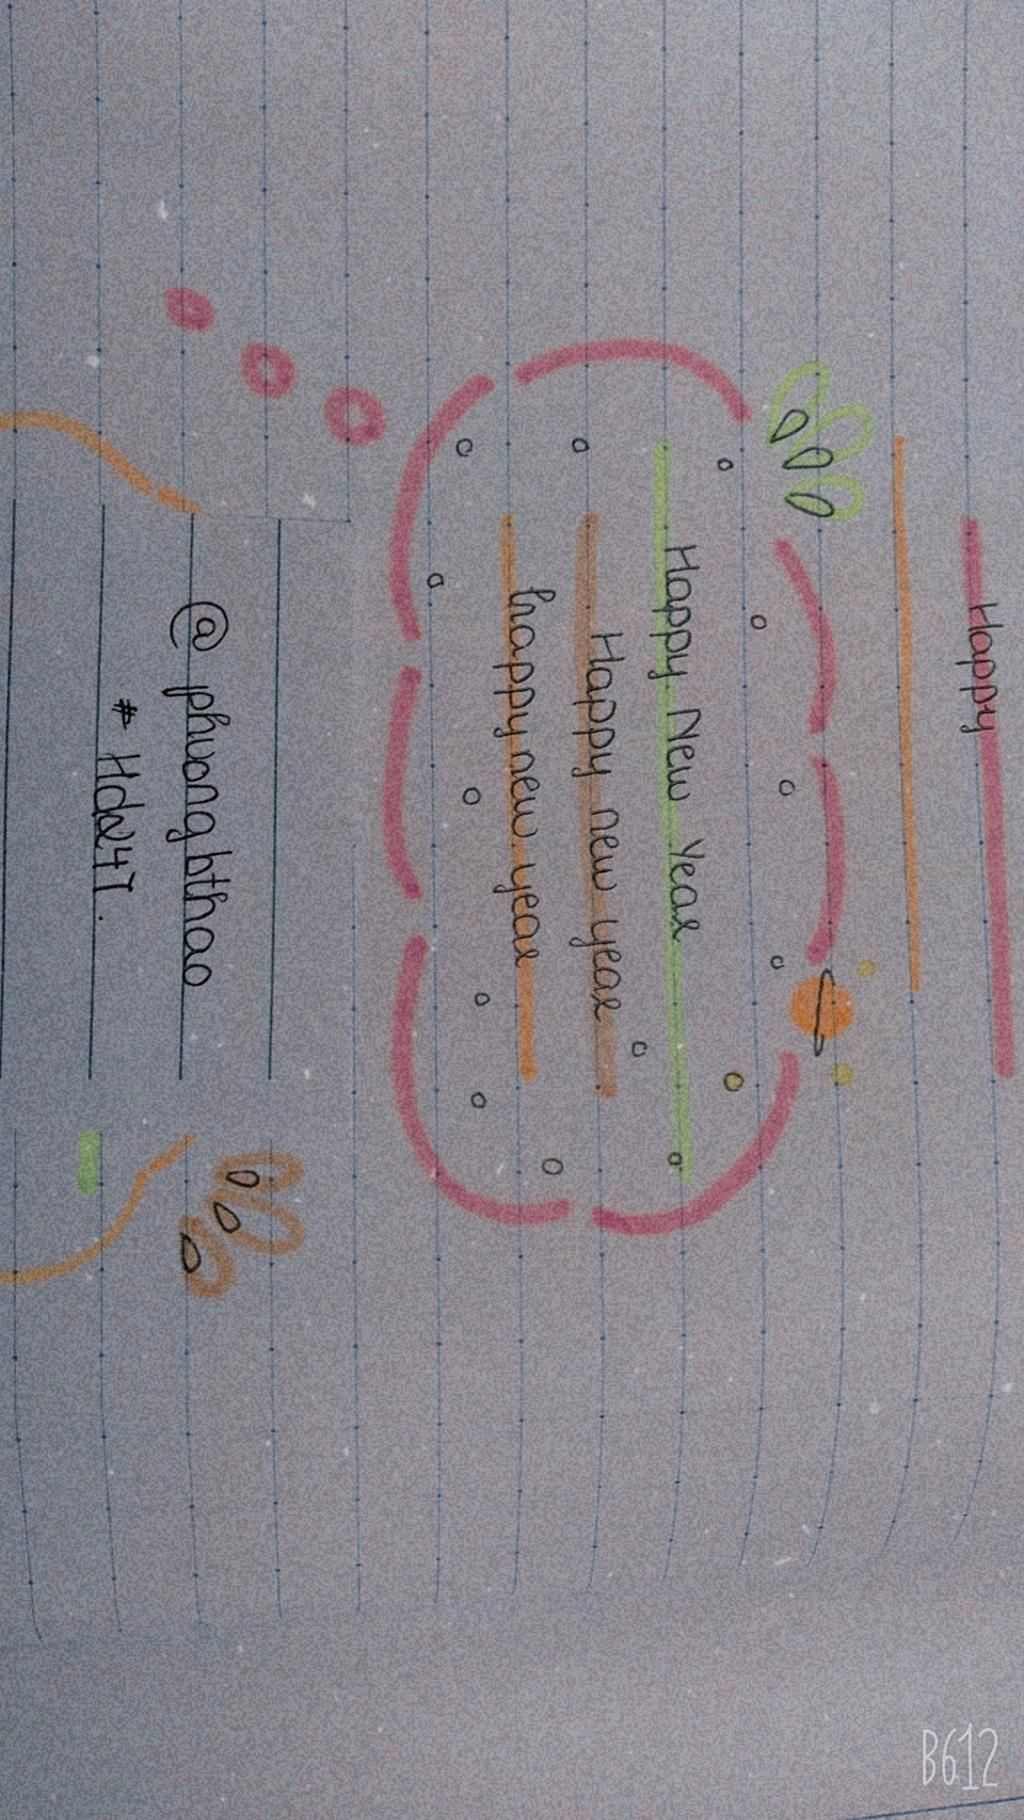 Happy
Happy New Year
Happy new year
happy new year
@ phuongbthao
# Hdz4T.
B612